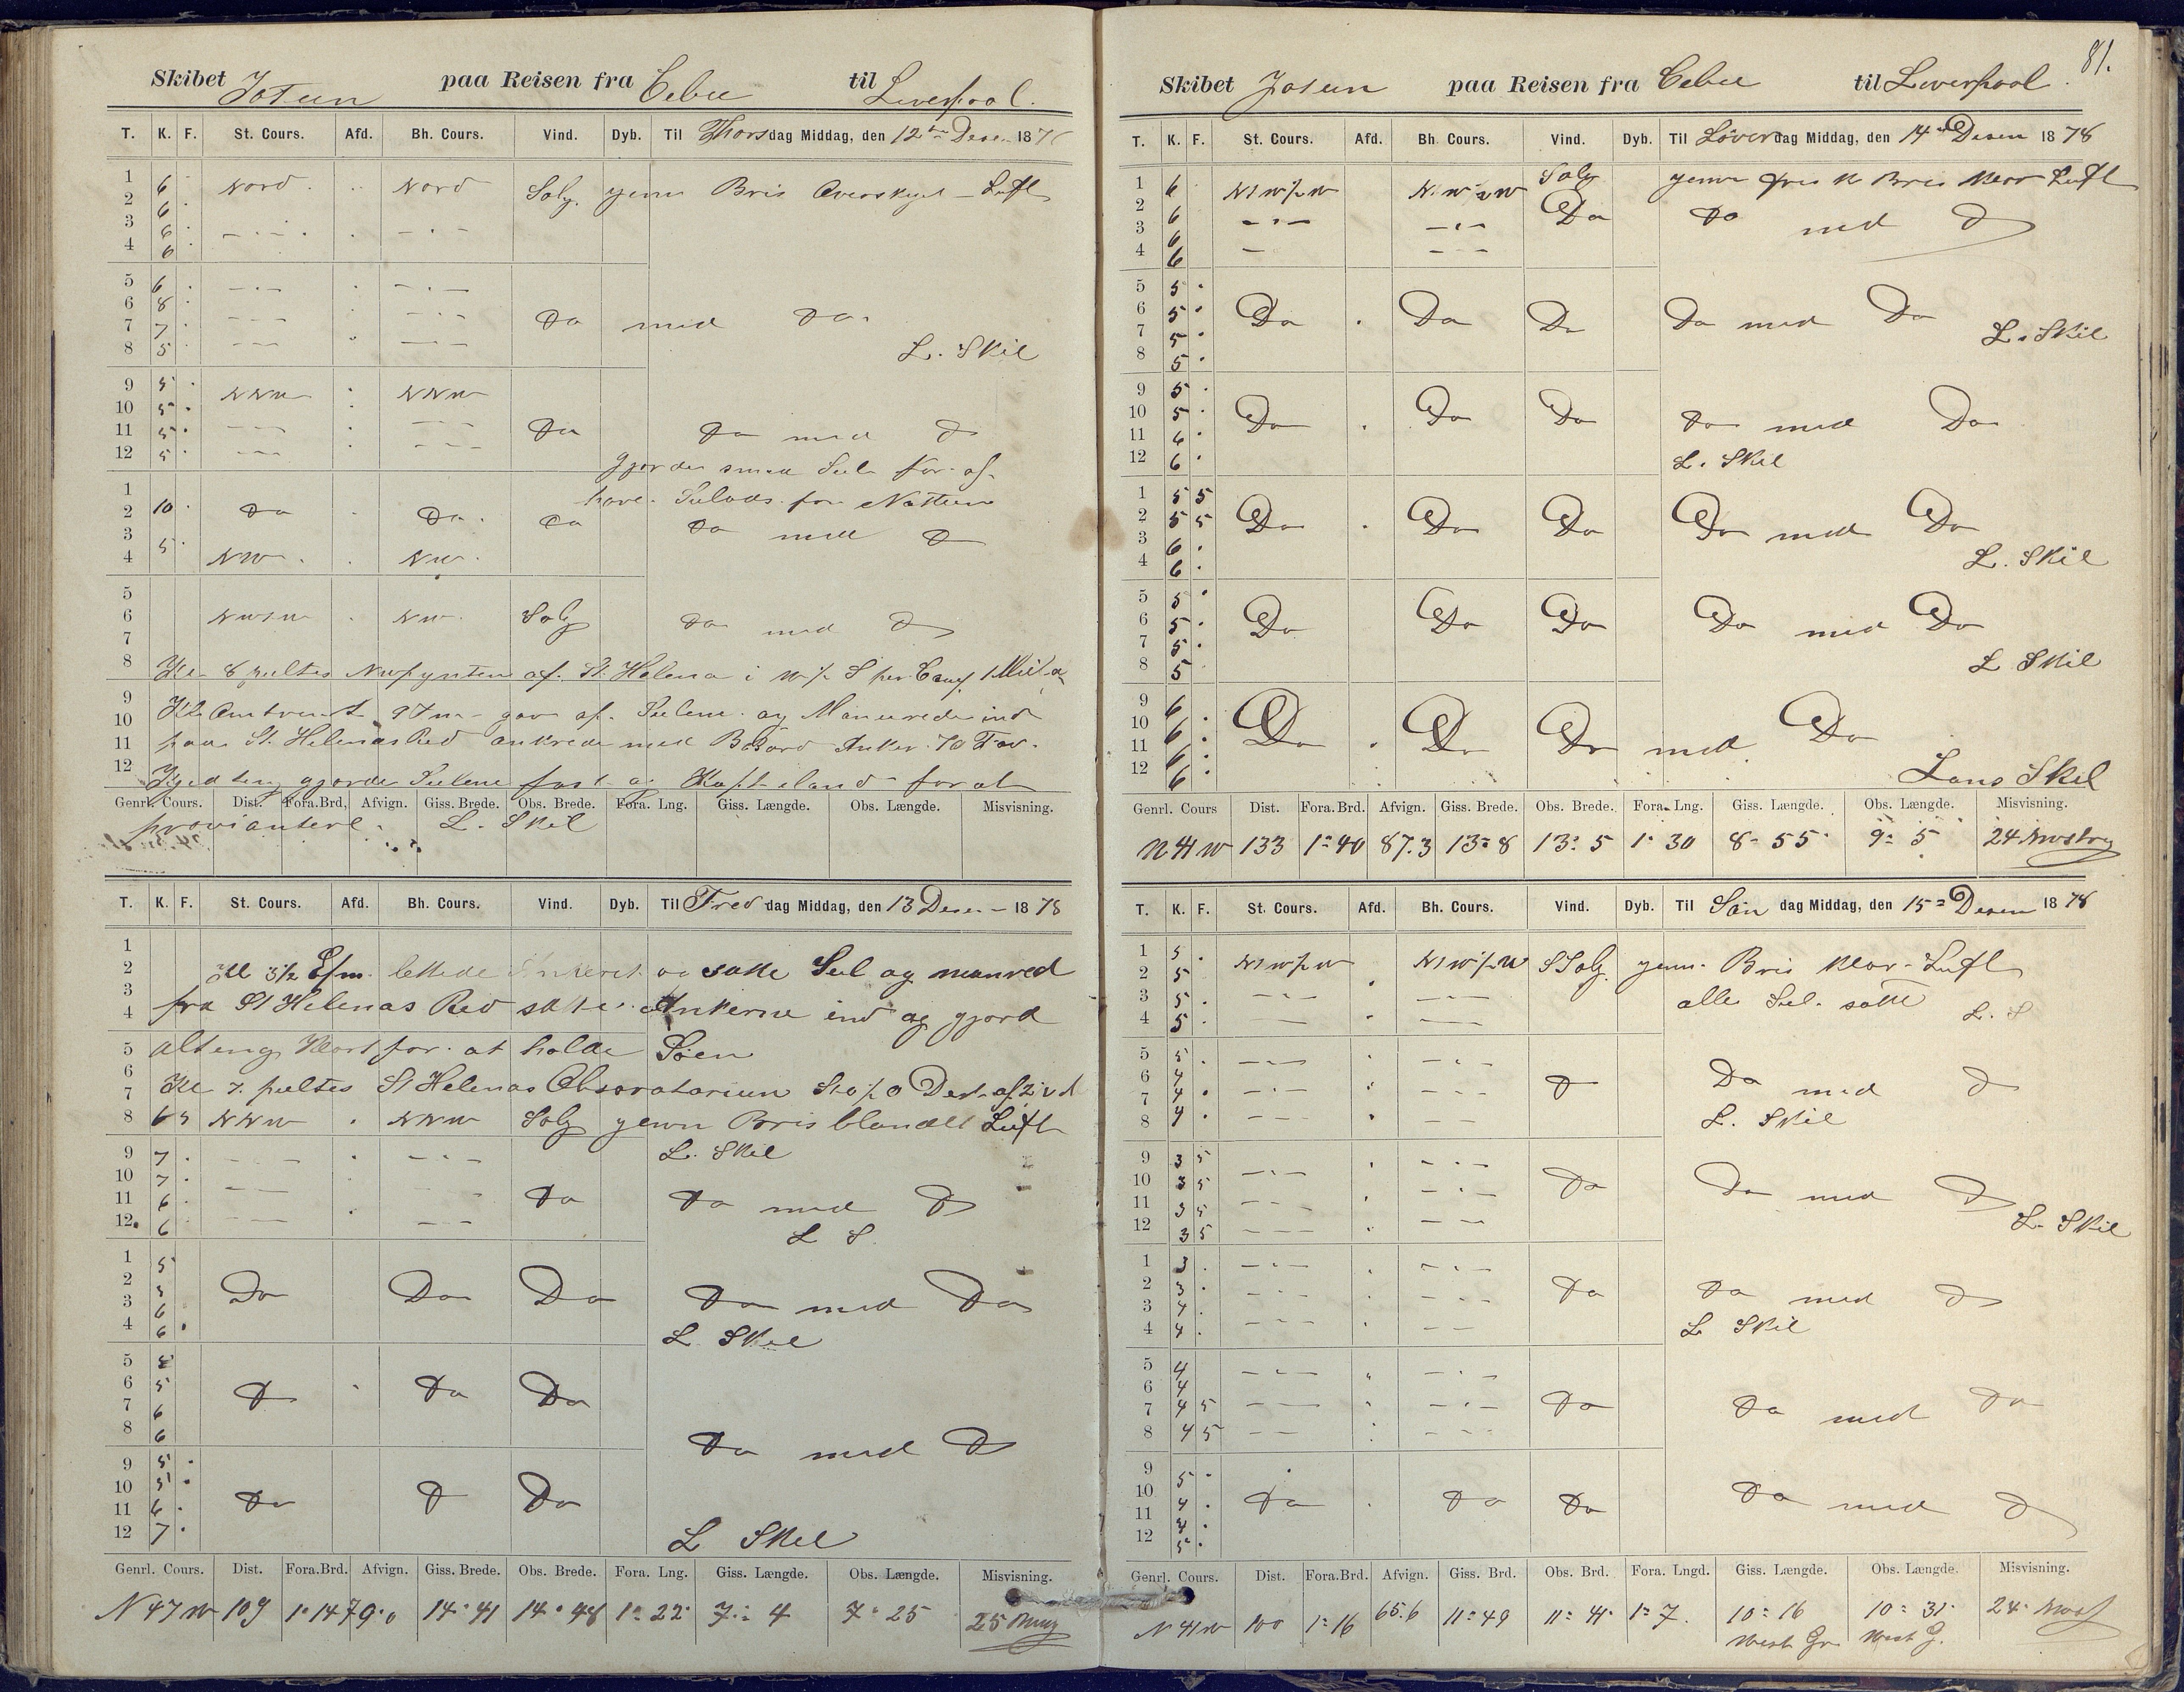 Skibet Jotun paa Reisen fra Cebu til Liverpool.
T. K. F. St. Cours. Afd. Bh. Cours. Vind. Dyb. Til Thorsdag Middag, den 12te Desen 187
1 6 Nord Nord Solg. jevn Bris Overskyet Luft
2 6
3 6
4 6
5 6
6 8
7 7 Do med Do
8 5 L. Skil
9 5 NNW NNW
10 5
11 5 Do Do med D
12 5
gjorde smaa Seil for af
have for Natten
1
2 10 Do Do Do Do med D
3
4 5 NW NW
5
6 NW NW Solg Do med D
7
8 Kl 8 peiltes af St. Helena i
9 Kl 9 Fm gav af Seilene og Manuvrede ind
10
11 paa St. Helenas Red ankrede med Babord Anker 70 Fav.
12 gjorde Seilene fast og Kapt iland for at
Genrl. Cours. Dist. Fora.Brd. Afvign. Giss. Brede. Obs. Brede. Fora. Lng. Giss. Længde. Obs. Længde. Misvisning.
proviantere. L. Skil
T. K. F. St. Cours. Afd. Bh. Cours. Vind. Dyb. Til Fredag Middag, den 13 Desen 1878
1
2 Kl 3½ Efm. lettede Ankeret og satte Seil og manvred
3
4 fra St Helenas Red satte Ankerne ind og gjord
5 alteng Klart for at holde Søen
6
7 Kl 7 peiltes St Helenas Obsoratorium
8 6 5 NNW NNW Solg jevn Bris blandet Luft
9 7 L. Skil
10 7
11 6 Do Do med D
12 6 L S.
1 5
2 5 Do Do Do Do med Do
3 6
4 6 L Skil
5 5
6 5 D Do Do
7 6
8 6 Do med D
9 5
10 5
11 6 Do D Do
12 7 L Skil
Genrl. Cours. Dist. Fora.Brd. Afvign. Giss. Brede. Obs. Brede. Fora. Lng. Giss. Længde. Obs. Længde. Misvisning.
N 47 W 109 1°14 79.0 14°41 14°48 1°22 7°4 7°25 25
81.
Skibet Jotun paa Reisen fra Cebu til Liverpool.
T. K. F. St. Cours. Afd. Bh. Cours. Vind. Dyb. Til Löverdag Middag, den 14de Desen 1878
1 6 NW½W NW½W Solg jevn frisk Bris klar Luft
2 6 Do Do med D
3 6
4 6
5 5
6 5 Do Do Do Do med Do
7 5 L. Skil
8 5
9 5
10 5 Do Do Do Do med Do
11 6
12 6 L. Skil
1 5 5
2 5 5 Do Do Do Do med Do
3 6
4 6 L. Skil
5 5
6 5 Do Do Do Do med Do
7 5
8 5 L Skil
9 6
10 6 Do Do Do med Do
11 6
12 6 Lans Skil
Genrl. Cours Dist. Fora.Brd. Afvign. Giss. Brede. Obs. Brede. Fora. Lng. Giss. Længde. Obs. Længde. Misvisning.
N 41 W 133 1°40 87.3 13°8 13°5 1°30 8°55 9°5 24
T. K. F. St. Cours. Afd. Bh. Cours. Vind. Dyb. Til Søndag Middag, den 15 Desem 1878
1 5 NW½W NW½W SSolg jevn Bris klar Luft
2 5
3 5 alle Seil satte L. S
4 5
5 5
6 4 D Do med D
7 4
8 4 L. Skil
9 3 5
10 3 5 Do Do med D
11 3 5
12 3 5 L. Skil
1 3
2 3 Do Do med D
3 4
4 4 L Skil
5 4
6 4
7 4 5 Do Do med Do
8 4 5
9 5
10 4 Do Do Do Do med D
11 4
12 5
Genrl. Cours. Dist. Fora.Brd. Afvign. Giss. Brd. Obs. Brd. Fora. Lngd. Giss. Længde. Obs. Længde. Misvisning.
N 41 W 100 1°16 65.6 11°49 11°41 1°7 10°16 10°31 24
West Gr. West G.